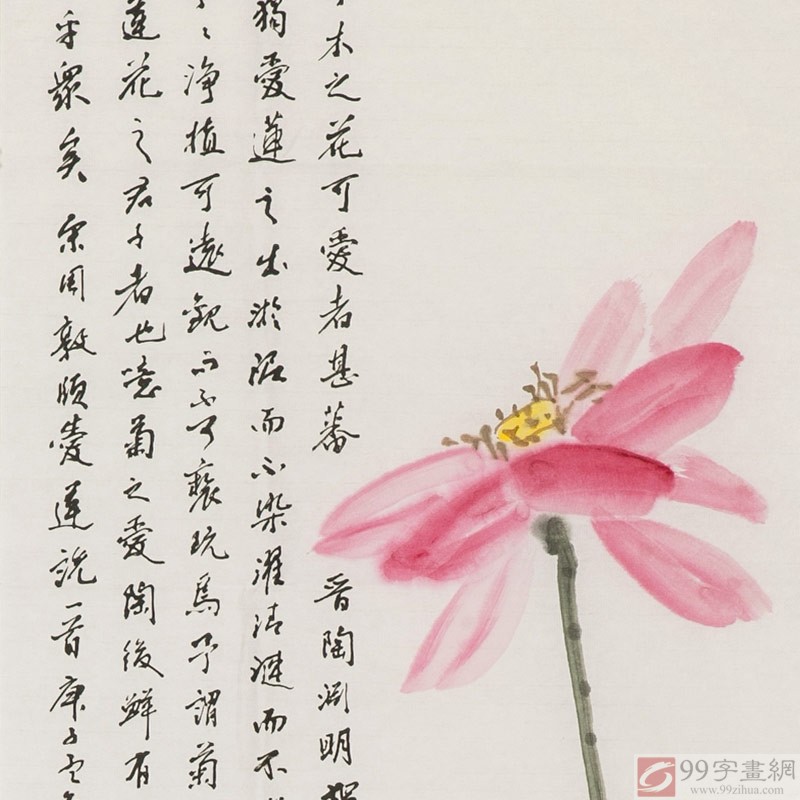 木之花可愛者甚蕃 晋陶淵明
獨愛蓮之出淤泥而不染濯清漣而不
々淨植可遠觀而不可褻玩焉予謂菊
蓮花之君子者也噫菊之愛陶後鮮有
乎眾矣 宋周敦頤愛蓮説一首庚子
99字畫網
www.99zihua.com